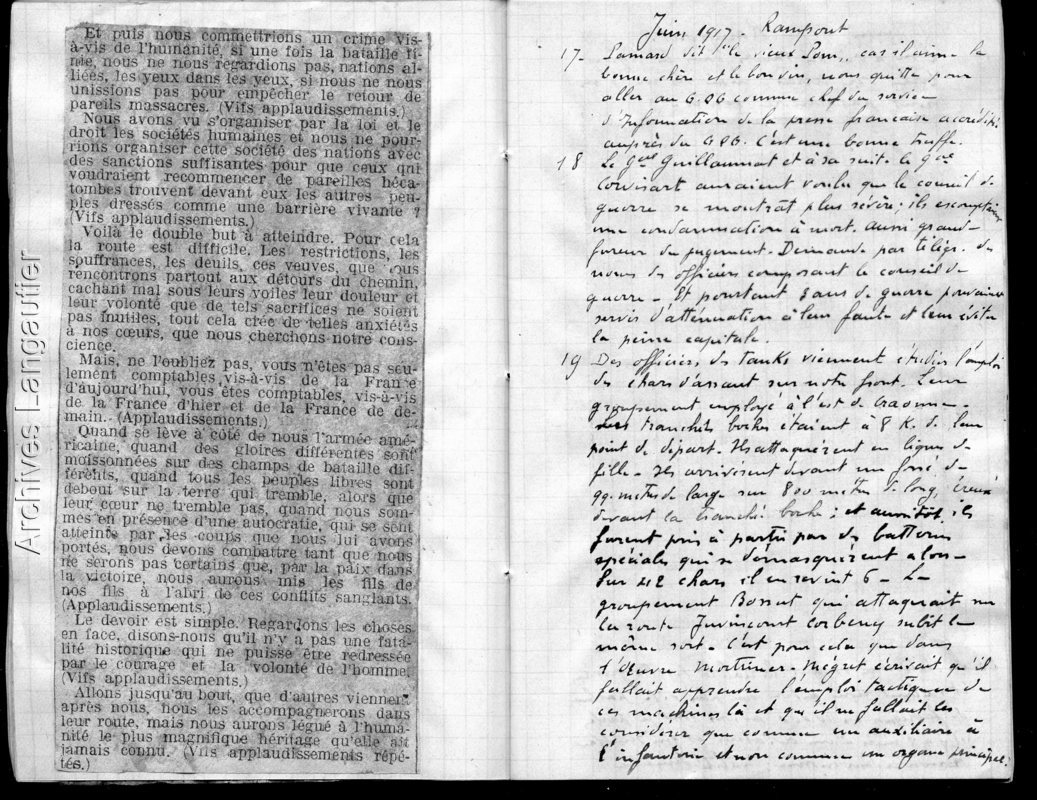 Archives Langautier
Et puis nous commettrions un crime vis-
à-vis de l'humanité, si une fois la bataille fi-
nie, nous ne nous regardions pas, nations al-
liées, les yeux dans les yeux, si nous ne nous
unissions pas pour empêcher le retour de
pareils massacres. (Vifs applaudissements.)
Nous avons vu s'organiser par la loi et le
droit les sociétés humaines et nous ne pour-
rions organiser cette société des nations avec
des sanctions suffisantes pour que ceux qui
voudraient recommencer de pareilles héca-
tombes trouvent devant eux les autres peu-
ples dressés comme une barrière vivante ?
(Vifs applaudissements.)
Voilà le double but à atteindre. Pour cela
la route est difficile. Les restrictions, les
souffrances, les deuils, ces veuves, que nous
rencontrons partout aux détours du chemin,
cachant mal sous leurs voiles leur douleur et
leur volonté que de tels sacrifices ne soient
pas inutiles, tout cela crée de telles anxiétés
à nos cœurs, que nous cherchons notre cons-
cience.
Mais, ne l'oubliez pas, vous n'êtes pas seu-
lement comptables vis-à-vis de la France
d'aujourd'hui, vous êtes comptables, vis-à-vis
de la France d'hier et de la France de de-
main. (Applaudissements.)
Quand se lève à côté de nous l'armée amé-
ricaine, quand des gloires différentes sont
moissonnées sur des champs de bataille dif-
férents, quand tous les peuples libres sont
debout sur la terre qui tremble, alors que
leur cœur ne tremble pas, quand nous som-
mes en présence d'une autocratie, qui se sent
atteinte par les coups que nous lui avons
portés, nous devons combattre tant que nous
ne serons pas certains que, par la paix dans
la victoire, nous aurons mis les fils de
nos fils à l'abri de ces conflits sanglants.
(Applaudissements.)
Le devoir est simple. Regardons les choses
en face, disons-nous qu'il n'y a pas une fata-
lité historique qui ne puisse être redressée
par le courage et la volonté de l'homme.
(Vifs applaudissements.)
Allons jusqu'au bout, que d'autres viennent
après nous, nous les accompagnerons dans
leur route, mais nous aurons légué à l'huma-
nité le plus magnifique héritage qu'elle ait
jamais connu. (Vifs applaudissements répé-
tés.)
Juin 1917 - Rampont
17 - Lamard dit "le vieux Pom", car il aime la
bonne chère et le bon vin, nous quitte pour
aller au G.QG comme chef du service
d'Information de la presse française accréditée
auprès du GQG. C'est une bonne truffe.
18 Le Gal Guillaumat et à sa suite le Gal
Corvisart auraient voulu que le conseil de
guerre se montrât plus sévère ; ils escomptaient
une condamnation à mort. Aussi grande
fureur du jugement. Demande par télégr. des
noms des officiers composant le conseil de
guerre - Et pourtant 3 ans de guerre pouvaient
servir d'atténuation à leur faute et leur éviter
la peine capitale.
19 Des officiers des tanks viennent étudier l'emploi
des chars d'assaut sur notre front. Leur
groupement employé à l'est de Craonne -
tranchées boches étaient à 8 K. de leur
point de départ. Ils attaquèrent en ligne de
file - Ils arrivèrent devant un fossé de
mètres de large sur 800 mètres de long, creusé
devant la tranchée boche ; et aussitôt, ils
furent pris à partie par des batteries
spéciales qui se démasquèrent alors -
Sur 42 chars il en revint 6 - Le
groupement Bossut qui attaquait sur
la route Juvincourt Corbeny subit le
même sort - C'est pour cela que dans
l'Œuvre Mortimer-Mégret écrivait qu'il
fallait apprendre l'emploi tactique de
ces machines là et qu'il ne fallait les
considérer que comme un auxiliaire à
l'infanterie et non comme un organe principal.